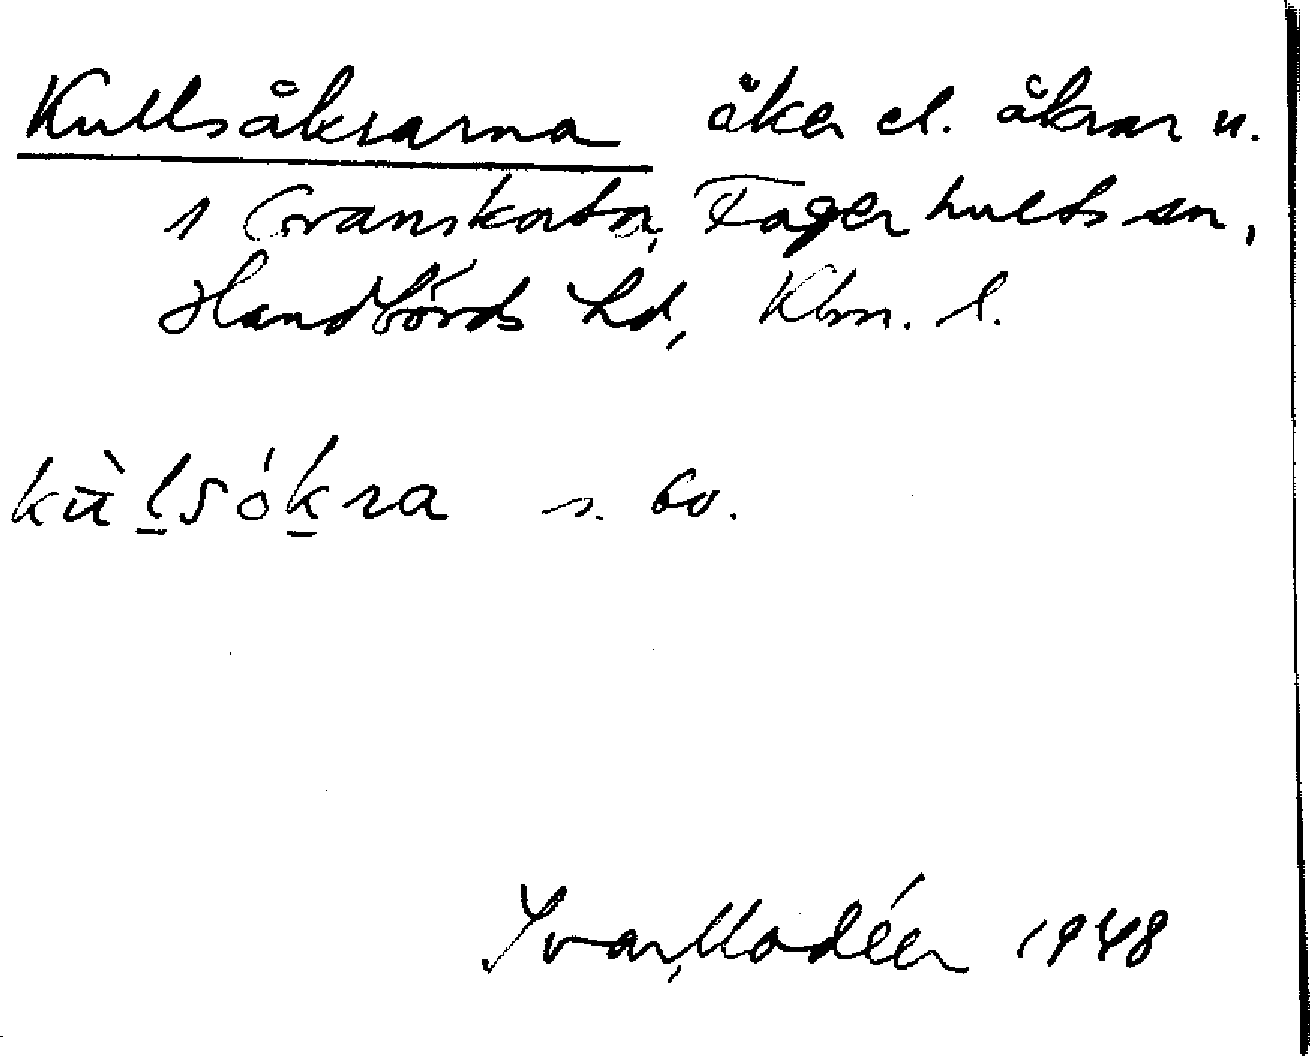 Kullsåkrarna åker el. åkrar u.
1 Granskata, Fagerhults sn,
Handbörds hd, Klm. l.
kùl̠sók̠ra s. bo.
Ivar Modéer 1948